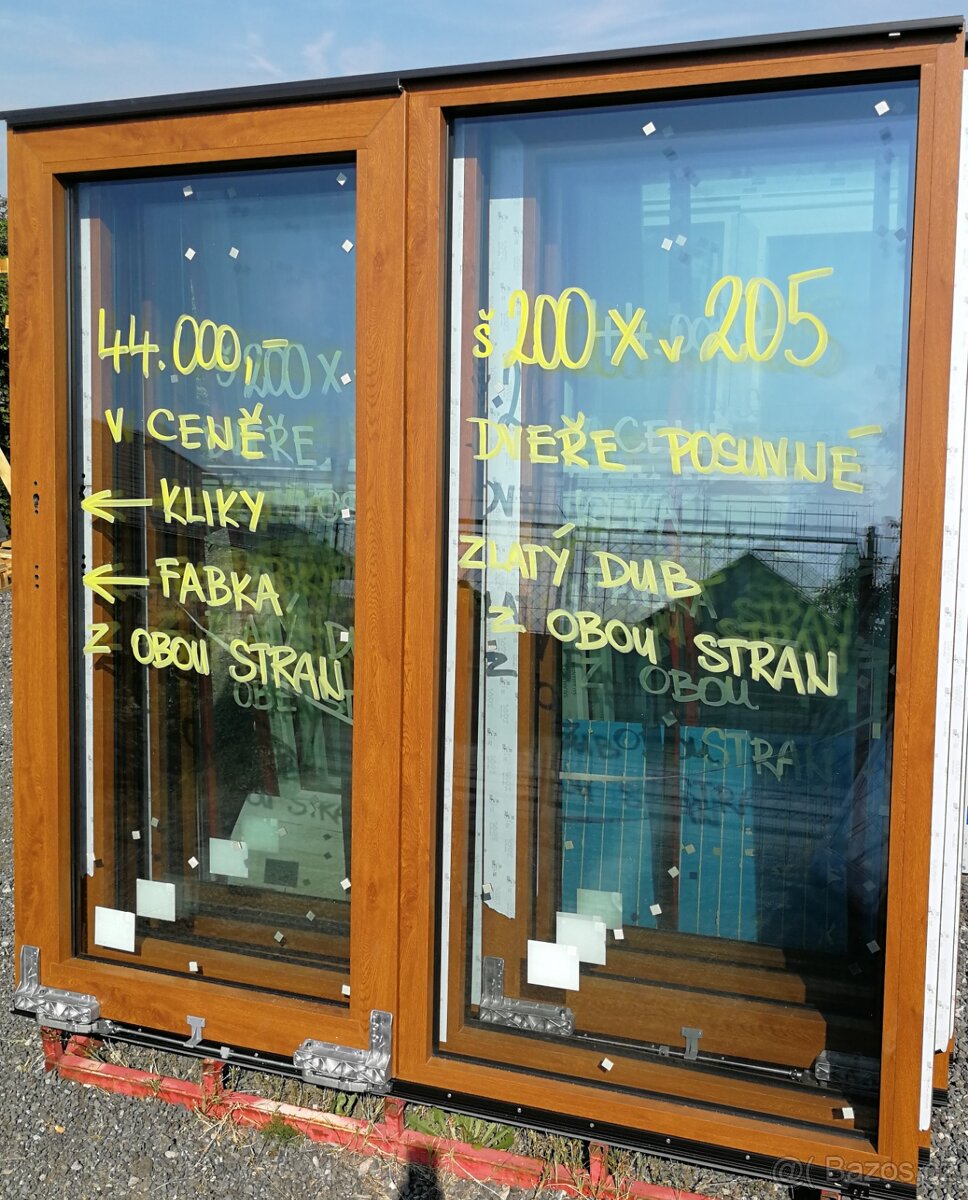 44.000,-
V CENĚ
← KLIKY
← FABKA
Z OBOU STRAN
Š 200 X V 205
DVEŘE POSUVNÉ
ZLATÝ DUB
Z OBOU STRAN
Bazos.cz